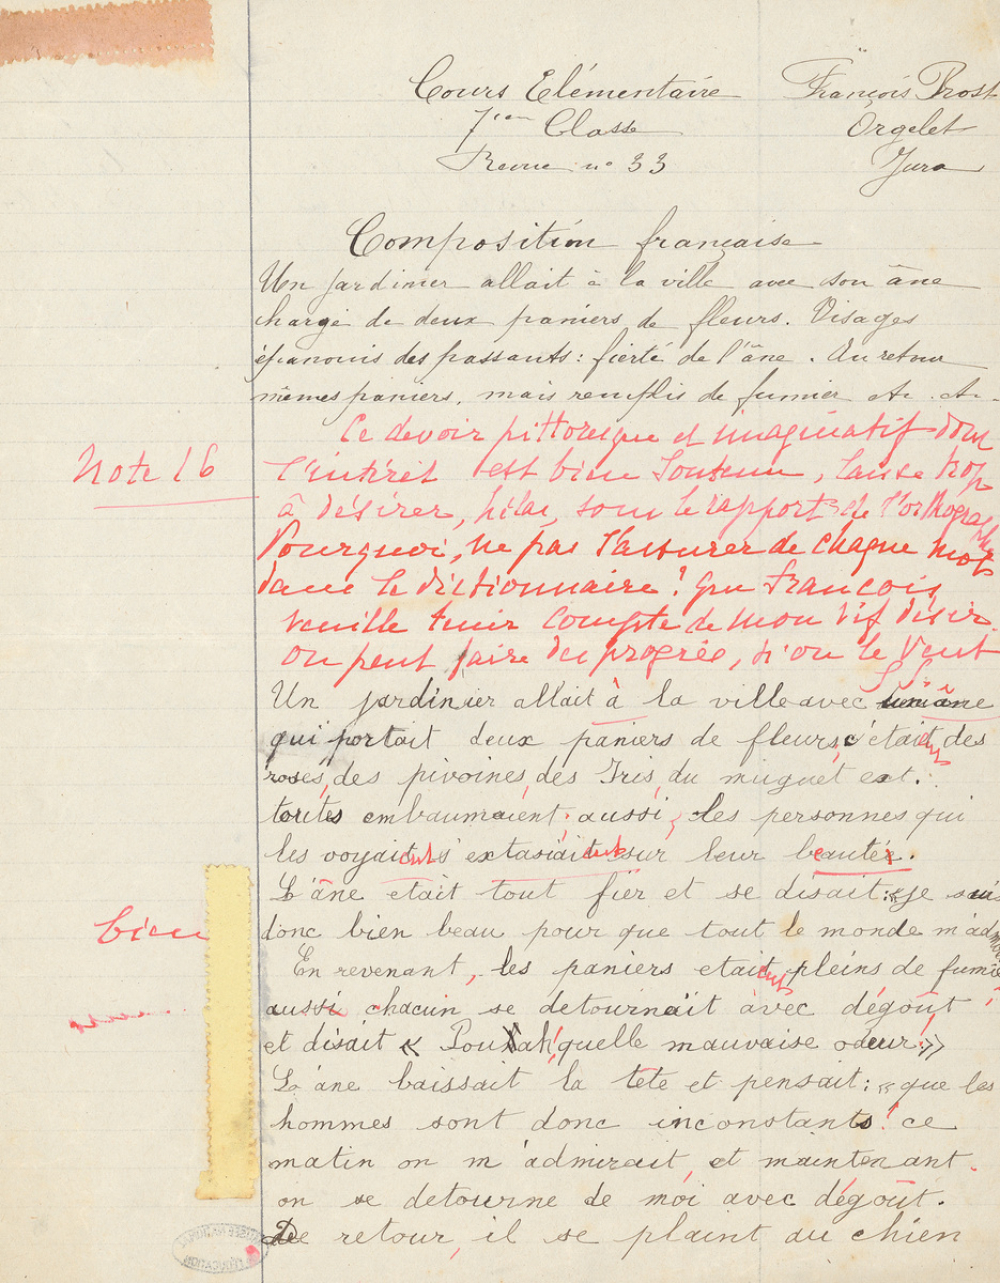 Cours Elémentaire François Prost
7ième Classe Orgelet
Revue n° 33 Jura
Composition française
Un jardinier allait à la ville avec son âne
chargé de deux paniers de fleurs. Visages
épanouis des passants : fierté de l'âne. Au retour
mêmes paniers, mais remplis de fumier etc. etc.
Ce devoir pittoresque et imaginatif dont
Note 16
l'intérêt est bien soutenu, laisse trop
à désirer, hélas, sous le rapport de l'orthographe
Pourquoi, ne pas s'assurer de chaque mot
dans le dictionnaire? Que François
veuille tenir compte de mon vif désir.
On peut faire des progrès, si on le veut
Un jardinier allait à la ville avec âne
qui portait deux paniers de fleurs, c'était des
roses, des pivoines, des Iris, du muguet ect.
toutes embaumaient; aussi, les personnes qui
les voyait s'extasiait sur leur beautée.
L'âne etait tout fier et se disait: «Je suis
bien
donc bien beau pour que tout le monde m'admire
En revenant, les paniers etait pleins de fumier
aussi chacun se detournait avec dégoût
et disait « Pouah! quelle mauvaise odeur! »
L'âne baissait la tete et pensait: «que les
hommes sont donc inconstants! ce
matin on m'admirait, et maintenant
on se detourne de moi avec dégoût.
De retour, il se plaint au chien